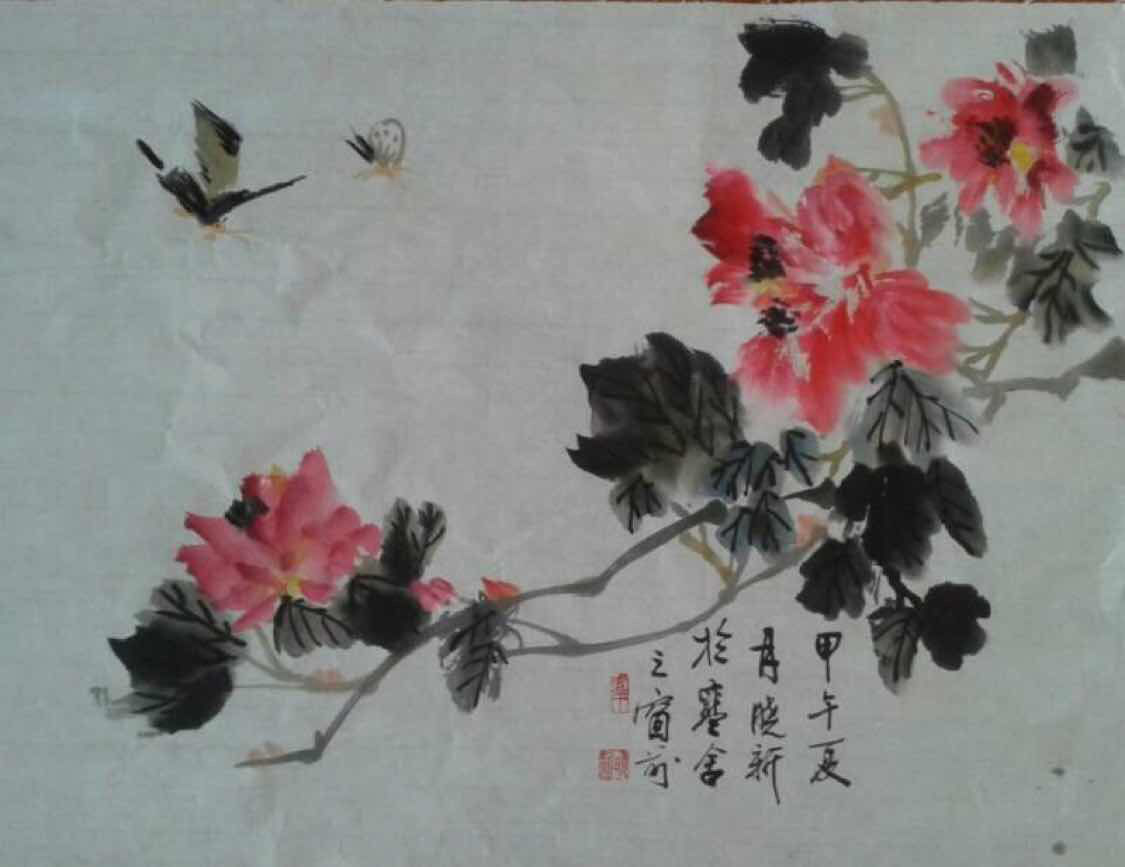 甲午夏
月晓新
於寒舍
之窗前